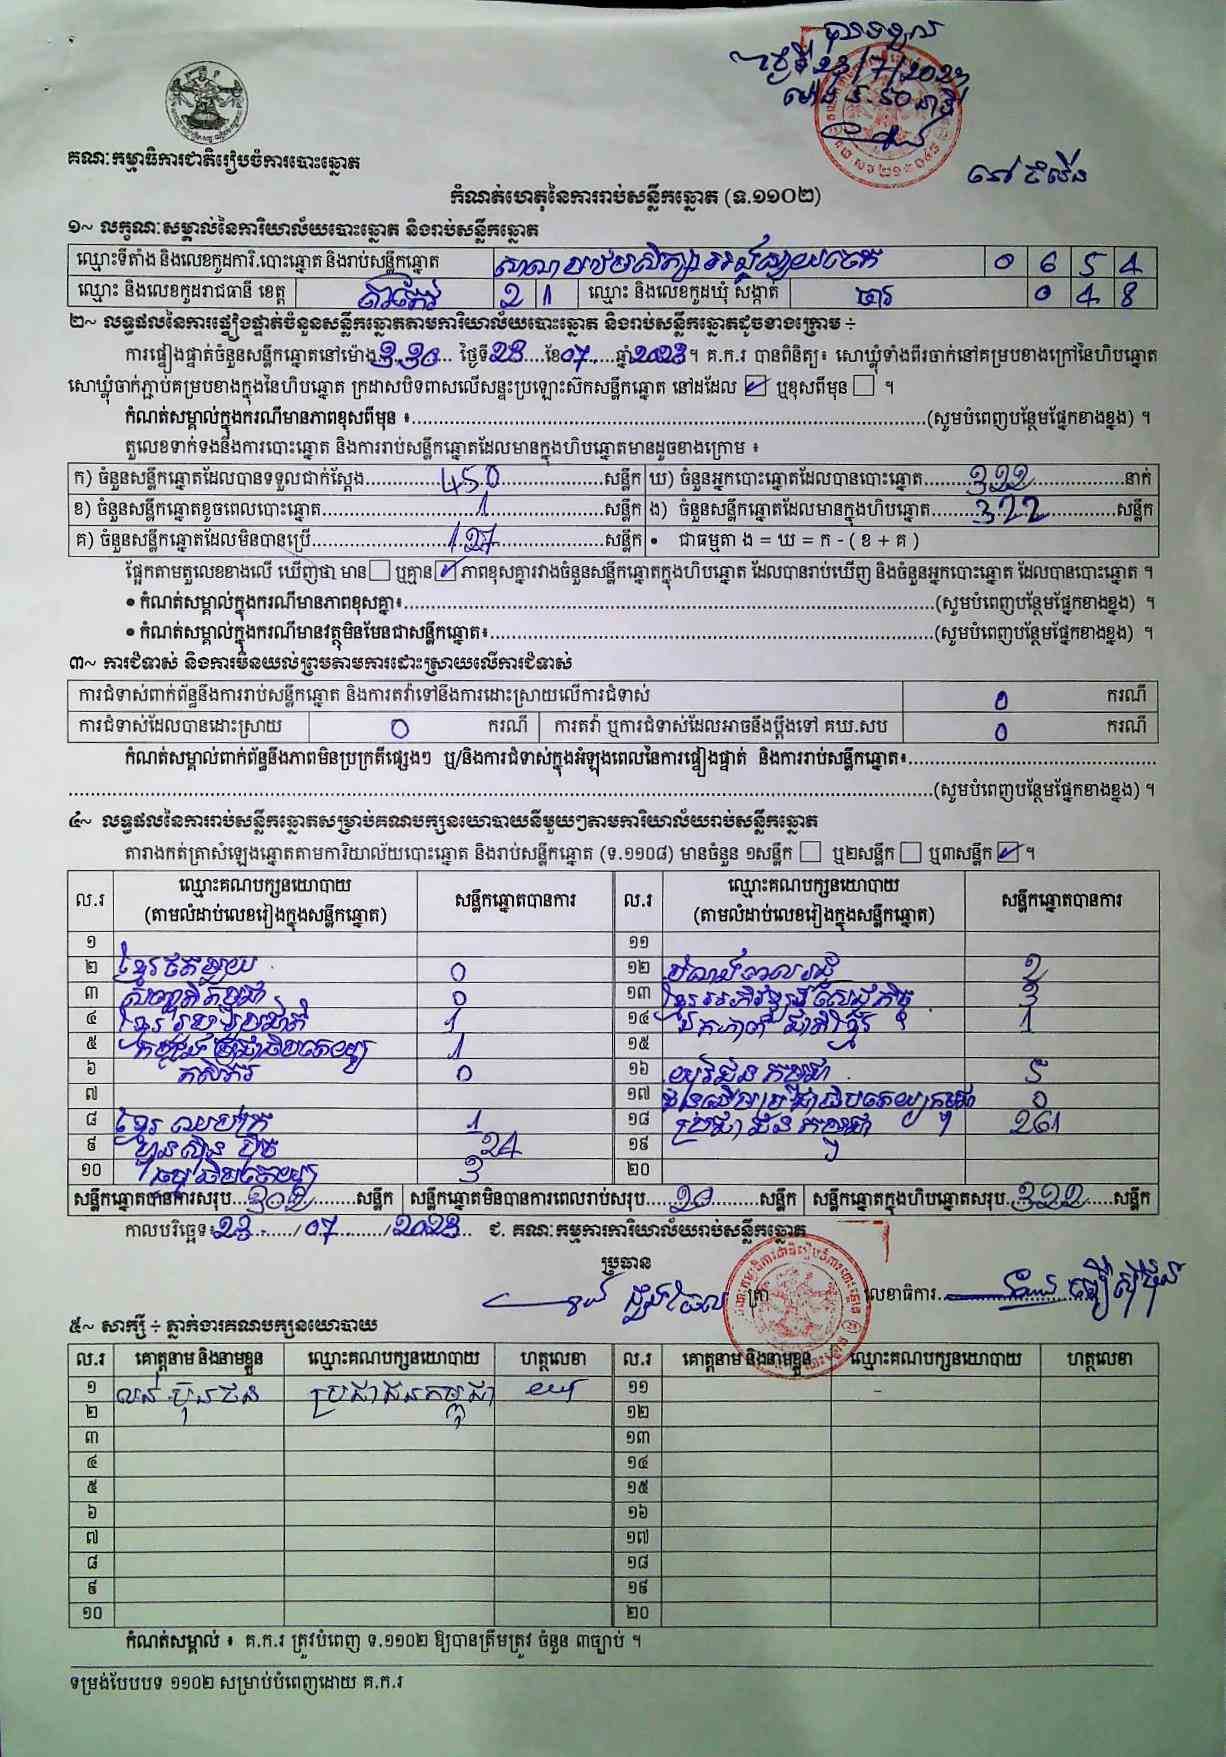 ថ្ងៃទី 23/7/2023
គណៈកម្មាធិការជាតិរៀបចំការបោះឆ្នោត
កំណត់ហេតុនៃការរាប់សន្លឹកឆ្នោត (ទ.១១០២)
១~ លក្ខណៈសម្គាល់នៃការិយាល័យបោះឆ្នោត និងរាប់សន្លឹកឆ្នោត
ឈ្មោះទីតាំង និងលេខកូដការិ.បោះឆ្នោត និងរាប់សន្លឹកឆ្នោត 0 6 5 4
ឈ្មោះ និងលេខកូដរាជធានី ខេត្ត តាកែវ 2 1 ឈ្មោះ និងលេខកូដឃុំ សង្កាត់ 0 4 8
២~ លទ្ធផលនៃការផ្ទៀងផ្ទាត់ចំនួនសន្លឹកឆ្នោតតាមការិយាល័យបោះឆ្នោត និងរាប់សន្លឹកឆ្នោតដូចខាងក្រោម ÷
ការផ្ទៀងផ្ទាត់ចំនួនសន្លឹកឆ្នោតនៅម៉ោង 3:30 ថ្ងៃទី 23 ខែ 07 ឆ្នាំ 2023 ។ គ.ក.រ បានពិនិត្យ៖ សោឃ្លុំទាំងពីរចាក់នៅគម្របខាងក្រៅនៃហិបឆ្នោត
សោឃ្លុំចាក់ភ្ជាប់គម្របខាងក្នុងនៃហិបឆ្នោត ក្រដាសបិទពាសលើសន្ទះប្រឡោះស៊កសន្លឹកឆ្នោត នៅដដែល ☑ ឬខុសពីមុន ☐ ។
កំណត់សម្គាល់ក្នុងករណីមានភាពខុសពីមុន ៖ (សូមបំពេញបន្ថែមផ្នែកខាងខ្នង) ។
តួលេខទាក់ទងនឹងការបោះឆ្នោត និងការរាប់សន្លឹកឆ្នោតដែលមានក្នុងហិបឆ្នោតមានដូចខាងក្រោម ៖
ក) ចំនួនសន្លឹកឆ្នោតដែលបានទទួលជាក់ស្តែង 450 សន្លឹក ឃ) ចំនួនអ្នកបោះឆ្នោតដែលបានបោះឆ្នោត 322 នាក់
ខ) ចំនួនសន្លឹកឆ្នោតខូចពេលបោះឆ្នោត 1 សន្លឹក ង) ចំនួនសន្លឹកឆ្នោតដែលមានក្នុងហិបឆ្នោត 322 សន្លឹក
គ) ចំនួនសន្លឹកឆ្នោតដែលមិនបានប្រើ 127 សន្លឹក • ជាធម្មតា ង = ឃ = ក - ( ខ + គ )
ផ្អែកតាមតួលេខខាងលើ ឃើញថា មាន ☐ ឬគ្មាន ☑ ភាពខុសគ្នារវាងចំនួនសន្លឹកឆ្នោតក្នុងហិបឆ្នោត ដែលបានរាប់ឃើញ និងចំនួនអ្នកបោះឆ្នោត ដែលបានបោះឆ្នោត ។
• កំណត់សម្គាល់ក្នុងករណីមានភាពខុសគ្នា៖ (សូមបំពេញបន្ថែមផ្នែកខាងខ្នង) ។
• កំណត់សម្គាល់ក្នុងករណីមានវត្ថុមិនមែនជាសន្លឹកឆ្នោត៖ (សូមបំពេញបន្ថែមផ្នែកខាងខ្នង) ។
៣~ ការជំទាស់ និងការមិនយល់ព្រមតាមការដោះស្រាយលើការជំទាស់
ការជំទាស់ពាក់ព័ន្ធនឹងការរាប់សន្លឹកឆ្នោត និងការតវ៉ាទៅនឹងការដោះស្រាយលើការជំទាស់ 0 ករណី
ការជំទាស់ដែលបានដោះស្រាយ 0 ករណី ការតវ៉ា ឬការជំទាស់ដែលអាចនឹងប្តឹងទៅ គឃ.សប 0 ករណី
កំណត់សម្គាល់ពាក់ព័ន្ធនឹងភាពមិនប្រក្រតីផ្សេងៗ ឬ/និងការជំទាស់ក្នុងអំឡុងពេលនៃការផ្ទៀងផ្ទាត់ និងការរាប់សន្លឹកឆ្នោត៖
(សូមបំពេញបន្ថែមផ្នែកខាងខ្នង) ។
៤~ លទ្ធផលនៃការរាប់សន្លឹកឆ្នោតសម្រាប់គណបក្សនយោបាយនីមួយៗតាមការិយាល័យរាប់សន្លឹកឆ្នោត
តារាងកត់ត្រាសំឡេងឆ្នោតតាមការិយាល័យបោះឆ្នោត និងរាប់សន្លឹកឆ្នោត (ទ.១១០៨) មានចំនួន ១សន្លឹក ☐ ឬ២សន្លឹក ☐ ឬ៣សន្លឹក ☑ ។
ល.រ ឈ្មោះគណបក្សនយោបាយ (តាមលំដាប់លេខរៀងក្នុងសន្លឹកឆ្នោត) សន្លឹកឆ្នោតបានការ ល.រ ឈ្មោះគណបក្សនយោបាយ (តាមលំដាប់លេខរៀងក្នុងសន្លឹកឆ្នោត) សន្លឹកឆ្នោតបានការ
១ ១១
២ 0 ១២ 2
៣ 0 ១៣ 3
៤ 1 ១៤ 1
៥ 1 ១៥
៦ 0 ១៦ យុវជនកម្ពុជា 5
៧ ១៧ 0
៨ 1 ១៨ ប្រជាជនកម្ពុជា 261
៩ ហ៊្វុនស៊ិនប៉ិច 24 ១៩
១០ 3 ២០
សន្លឹកឆ្នោតបានការសរុប 302 សន្លឹក សន្លឹកឆ្នោតមិនបានការពេលរាប់សរុប 20 សន្លឹក សន្លឹកឆ្នោតក្នុងហិបឆ្នោតសរុប 322 សន្លឹក
កាលបរិច្ឆេទ៖ 23 / 07 / 2023 ជ. គណៈកម្មការការិយាល័យរាប់សន្លឹកឆ្នោត
ប្រធាន ត្រា លេខាធិការ
៥~ សាក្សី ÷ ភ្នាក់ងារគណបក្សនយោបាយ
ល.រ គោត្តនាម និងនាមខ្លួន ឈ្មោះគណបក្សនយោបាយ ហត្ថលេខា ល.រ គោត្តនាម និងនាមខ្លួន ឈ្មោះគណបក្សនយោបាយ ហត្ថលេខា
១ ប្រជាជនកម្ពុជា ១១
២ ១២
៣ ១៣
៤ ១៤
៥ ១៥
៦ ១៦
៧ ១៧
៨ ១៨
៩ ១៩
១០ ២០
កំណត់សម្គាល់ ៖ គ.ក.រ ត្រូវបំពេញ ទ.១១០២ ឱ្យបានត្រឹមត្រូវ ចំនួន ៣ច្បាប់ ។
ទម្រង់បែបបទ ១១០២ សម្រាប់បំពេញដោយ គ.ក.រ